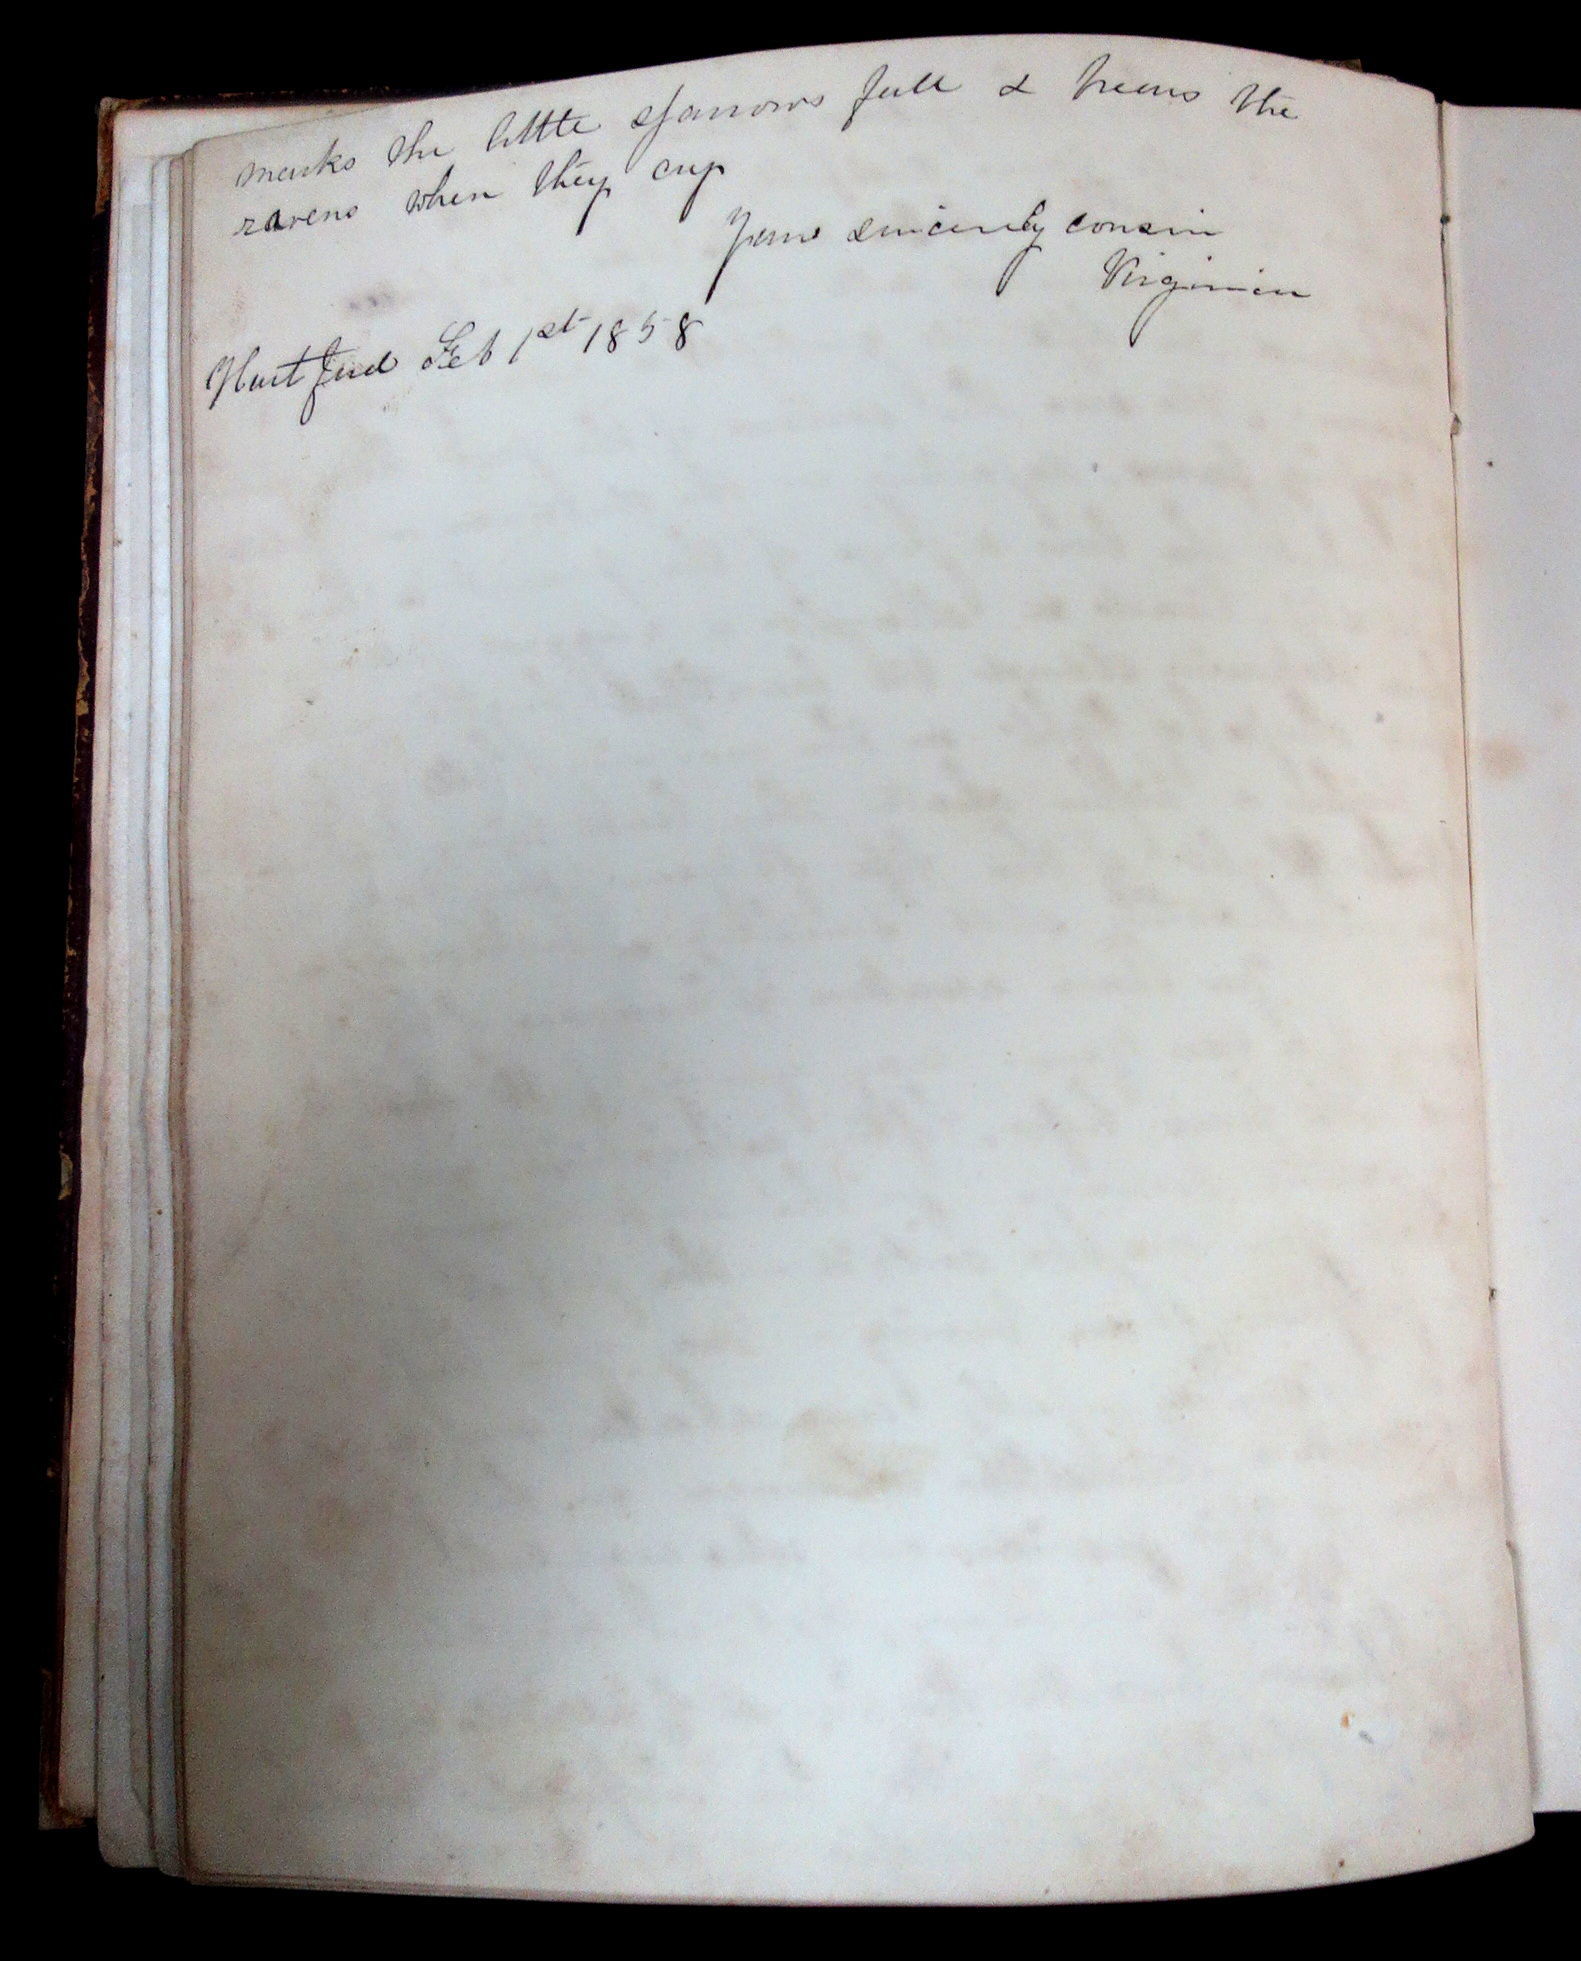 marks the little sparrows fall & hears the
ravens when they cry
Yours sincerely cousin
Virginia
Hartford Feb 1st 1858